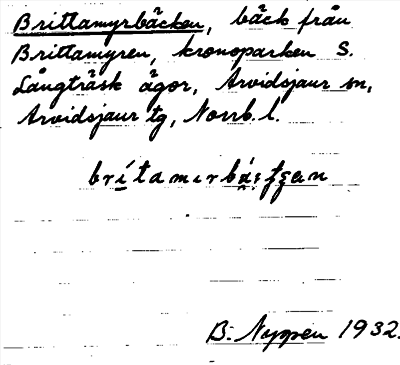 Brittamyrbäcken, bäck från
Brittamyren, kronoparken S.
Långträsk ägor, Arvidsjaur sn,
Arvidsjaur tg, Norrb. l.
B. Nyman 1932.